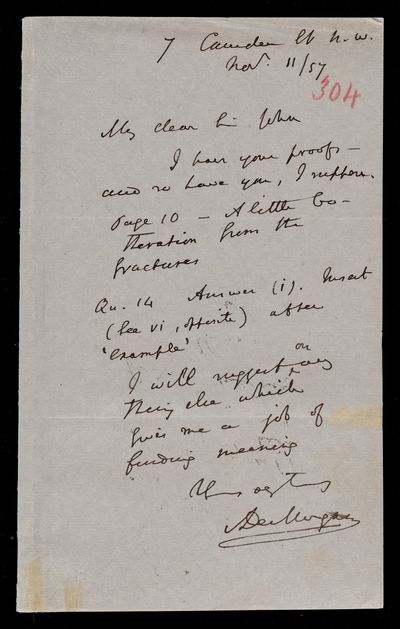 7 Camden St N.W.
Novr. 11/57
304
My dear Sir John
I have your proofs —
and so have you, I suppose.
Page 10 — A little bo-
theration from the
fractures
Qu. 14 Answer (i). Insert
(See vi, opposite) after
'example'
I will suggest on any
thing else which
gives me a job of
finding meaning
Yours very truly
ADeMorgan